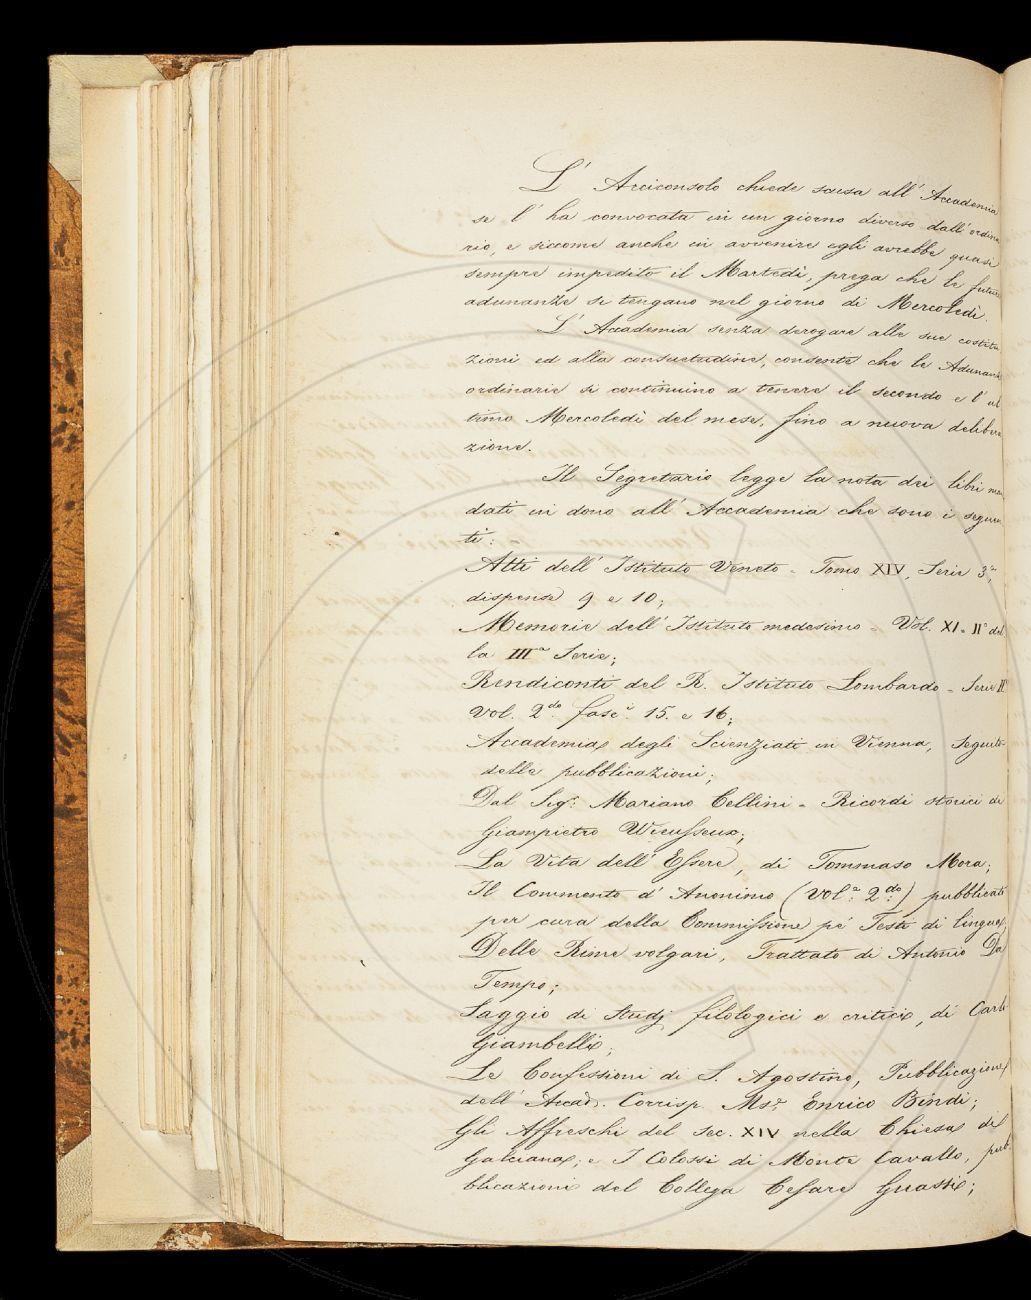 L' Arciconsolo chiede scusa all' Accademia
se l' ha convocata in un giorno diverso dall' ordina
rio, e siccome anche in avvenire egli avrebbe quasi
sempre impedito il Martedì, prega che le future
adunanze si tengano nel giorno di Mercoledì.
L' Accademia senza derogare alle sue costitu
zioni ed alla consuetudine, consente che le Adunanze
ordinarie si continuino a tenere il secondo e l' ul
timo Mercoledì del mese, fino a nuova delibera
zione.
Il Segretario legge la nota dei libri man
dati in dono all' Accademia che sono i seguen
ti:
Atti dell' Istituto Veneto - Tomo XIV, Serie 3ª,
dispense 9 e 10;
Memorie dell' Istituto medesimo - Vol. XI. IIº del
la IIIª Serie;
Rendiconti del R. Istituto Lombardo - Serie II
Vol. 2do. fasci. 15. e 16;
Accademia degli Scienziati in Vienna, Seguito
delle pubblicazioni;
Dal Sigr. Mariano Cellini - Ricordi storici di
Giampietro Vieusseux;
La Vita dell' Essere, di Tommaso Mora;
Il Commento d' Anonimo (Vole. 2do.) pubblicato
per cura della Commissione pe' Testi di lingua;
Delle Rime volgari, Trattato di Antonio Da
Tempo;
Saggio di Studj filologici e critici, di Carlo
Giambelli;
Le Confessioni di S. Agostino, Pubblicazione
dell' Accad. Corrisp. Msr. Enrico Bindi;
Gli Affreschi del Sec. XIV nella Chiesa di
Galciana; e I Colossi di Monte Cavallo, pub
blicazioni del Collega Cesare Guasti;